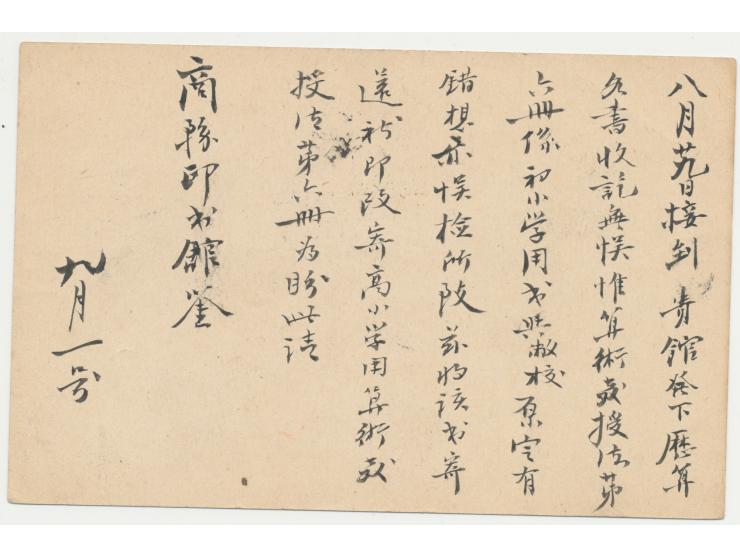 八月廿九日接到 貴館發下歷算
各書收訖無悮惟算術教授法第
六冊係初小学用书與敝校原定有
錯想亦悮檢所致茲將该书寄
還祈即改寄高小学用算術教
授法第六冊為盼此請
商務印书館鉴
九月一号